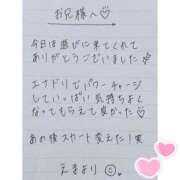 お兄様へ♡
今日は遊びに来てくれて
ありがとうございました
エナドリでパワーチャージ
していっぱい気持ちよく
なってもらえて良かった♡
あの後スカート変えた！笑
えまより☺